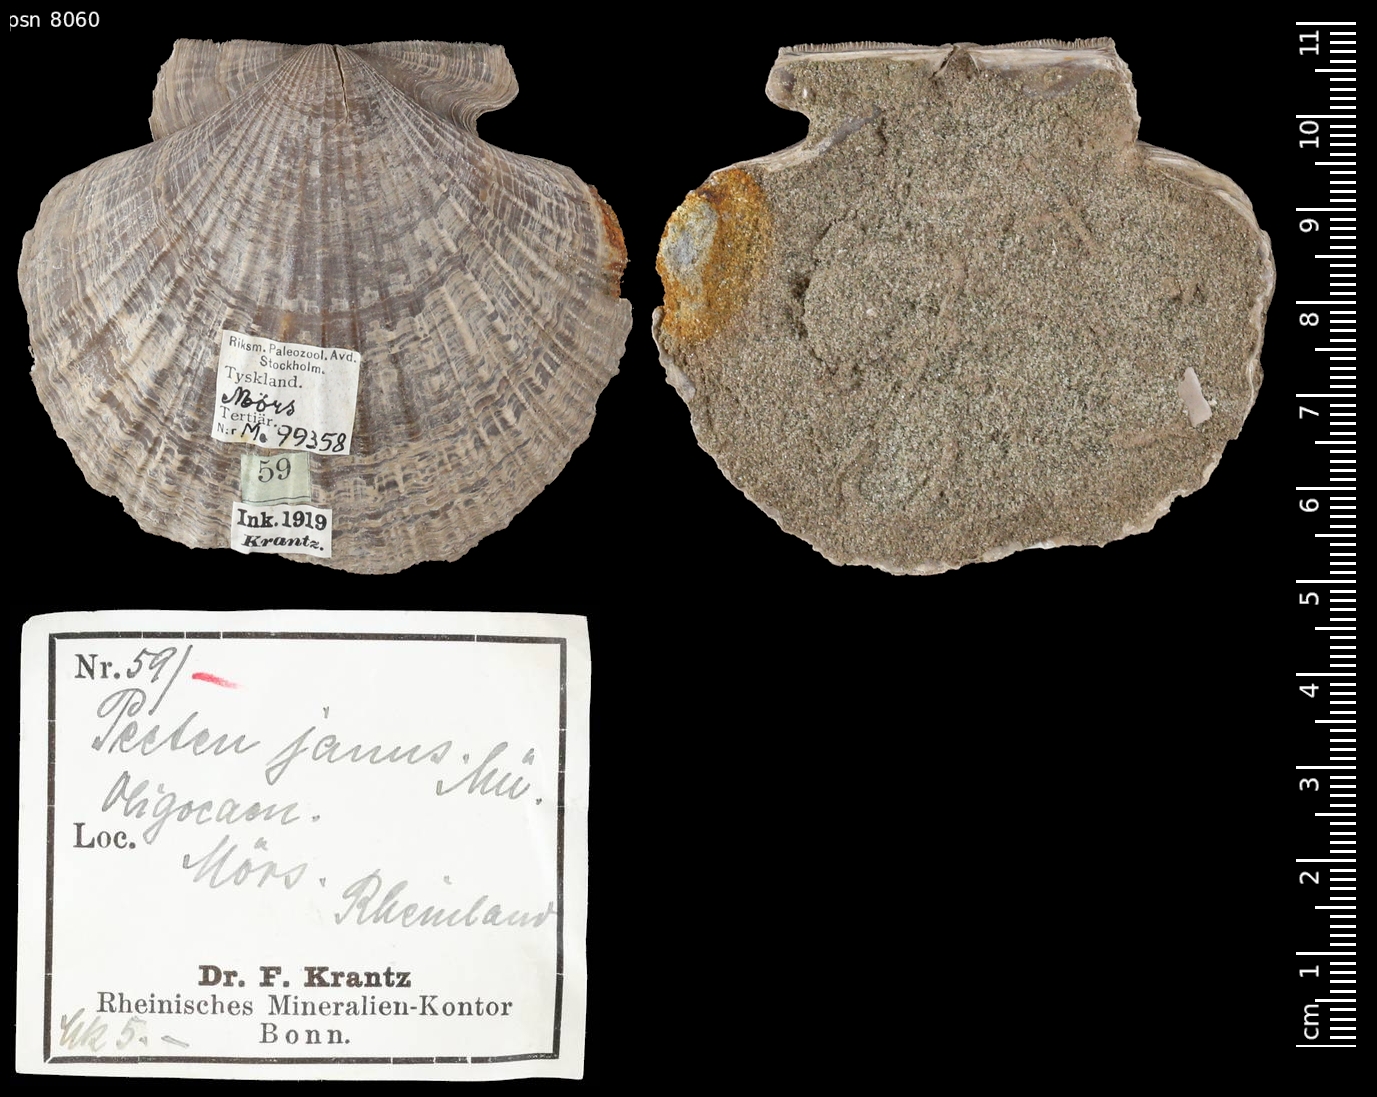 psn 8060
Riksm. Paleozool. Avd.
Stockholm.
Tyskland.
Mörs
Tertiär.
N:r M. 99358
59
Ink. 1919
Krantz.
Nr. 59/
Pecten janus. Mü.
Oligocaen.
Loc.
Mörs.
Rheinland
Dr. F. Krantz
Rheinisches Mineralien-Kontor
Bonn.
Mk 5. –
11
10
9
8
7
6
5
4
3
2
1
cm